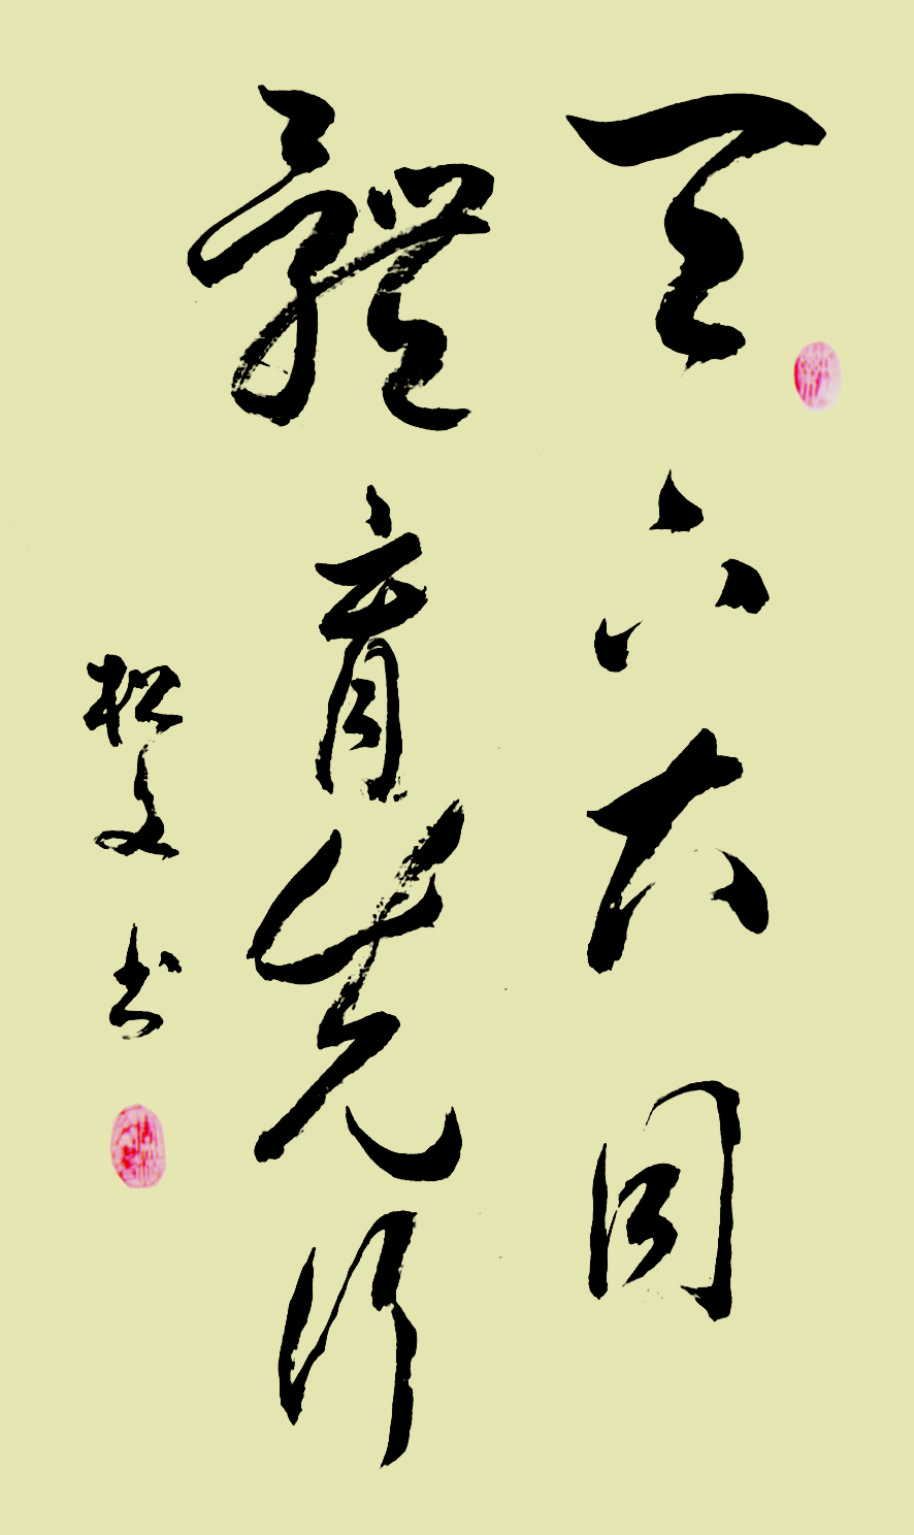 天下大同
體育先行
松文书